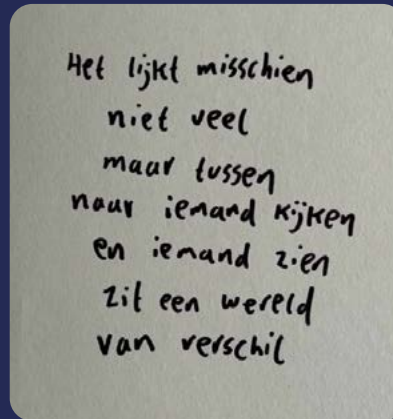 Het lijkt misschien
niet veel
maar tussen
naar iemand kijken
en iemand zien
zit een wereld
van verschil